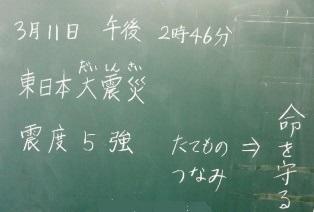 3月11日 午後 2時46分
だいしんさい
東日本大震災
震度5強
たてもの ⇒
つなみ
命を守る